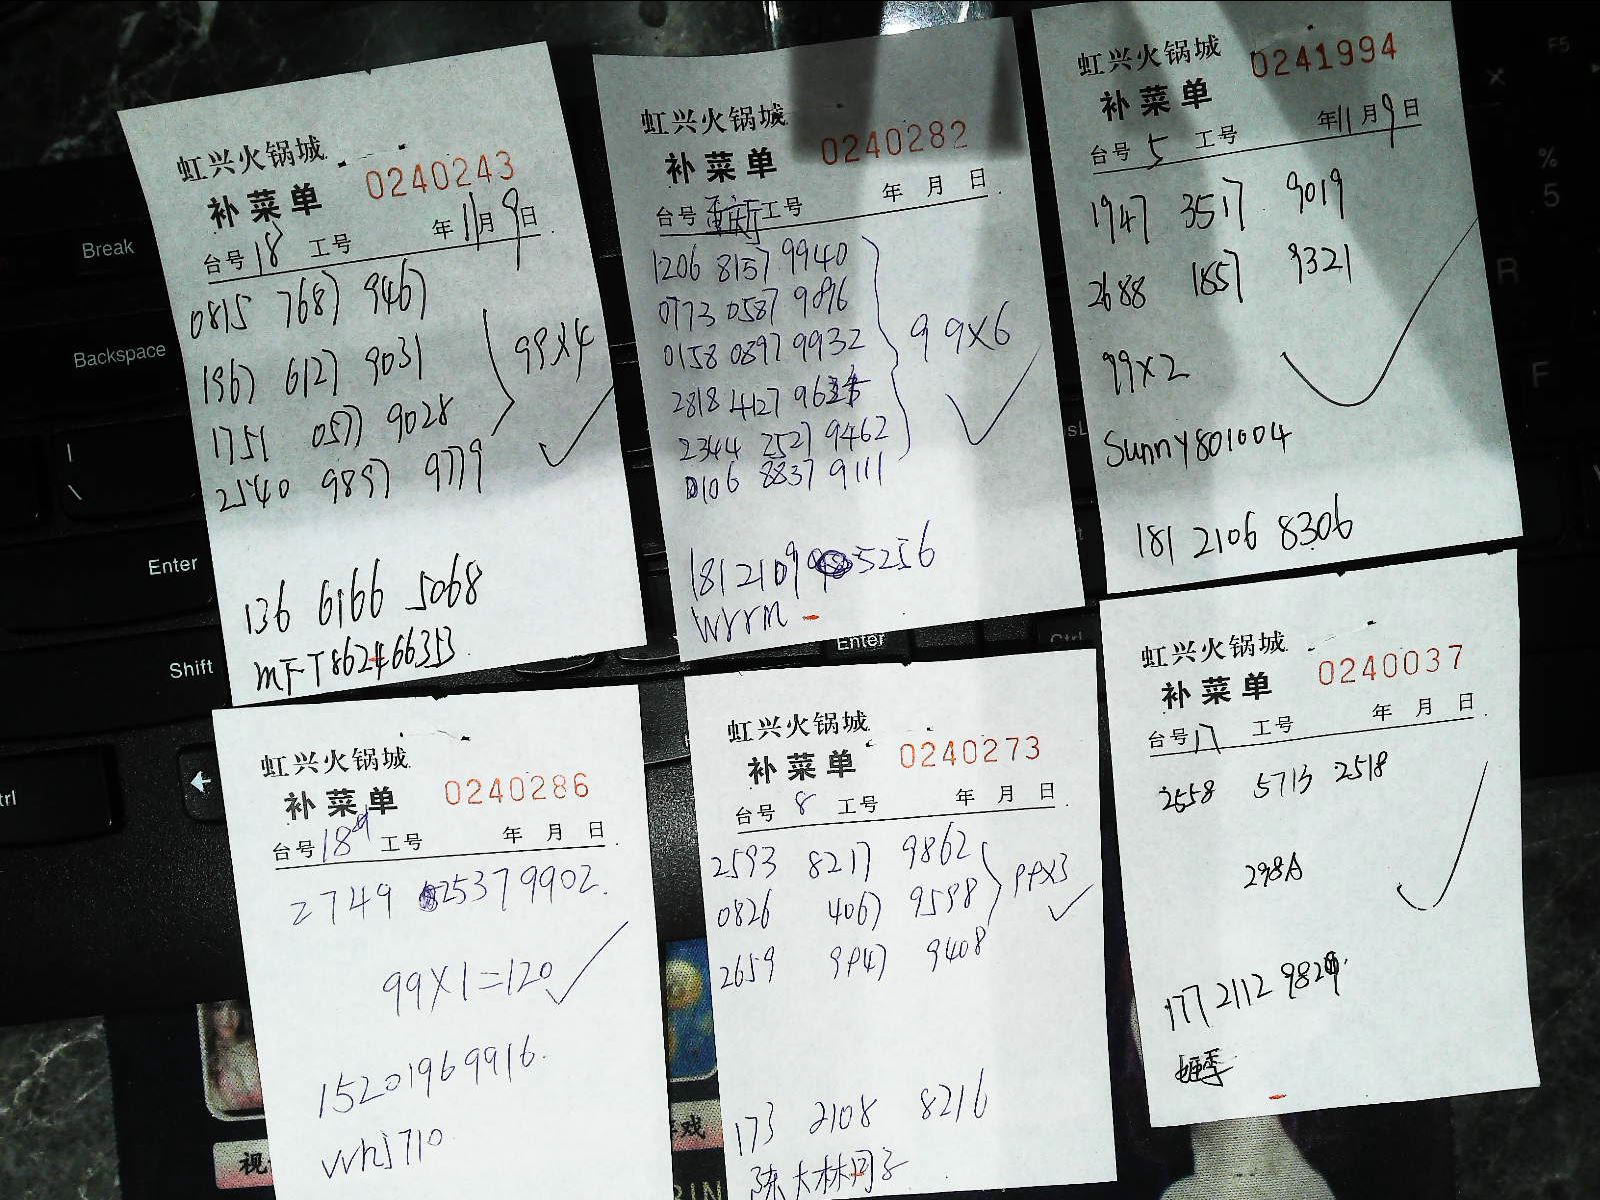 虹兴火锅城
补菜单 0240243
台号 18 工号 年 11 月 9 日
0815 7687 9467
1967 6127 9031
1751 0577 9028
2540 9897 9779
99×4
136 6166 5068
mFT862466353
虹兴火锅城
补菜单 0240282
台号 工号 年 月 日
1206 8157 9940
0773 0587 9896
0158 0897 9932
2818 4127
2344 2527 9462
0106 8837 9111
99×6
181 2109 5256
wrrm
虹兴火锅城
补菜单 0241994
台号 5 工号 年 11 月 9 日
1947 3517 9019
2688 1857 9321
99×2
Sunny801004
181 2106 8306
虹兴火锅城
补菜单 0240286
台号 18 工号 年 月 日
2749 25379902.
99×1=120
15201969916.
whj710
虹兴火锅城
补菜单 0240273
台号 8 工号 年 月 日
2593 8217 9862
0826 4067 9598
2659 9947 9408
99×3
173 2108 8216
陈大林同子
虹兴火锅城
补菜单 0240037
台号 17 工号 年 月 日
2558 5713 2518
298A
177 2112
Break
Backspace
Enter
Shift
Enter
Ctrl
F5
%
5
R
F